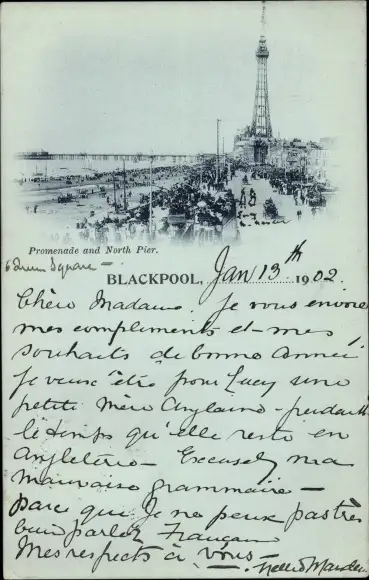 Promenade and North Pier.
Square -
BLACKPOOL, Jan 13th 1902.
Chère Madame. Je vous envoie
mes compliments et mes
souhaits de bonne Année
Je veux être pour Lucy une
petite Mère Anglaise - pendant
le temps qu'elle reste en
Angleterre - Excusez ma
Mauvaise grammaire -
parc que Je ne peux pas très
bien parlez Français
Mes respects à vous -